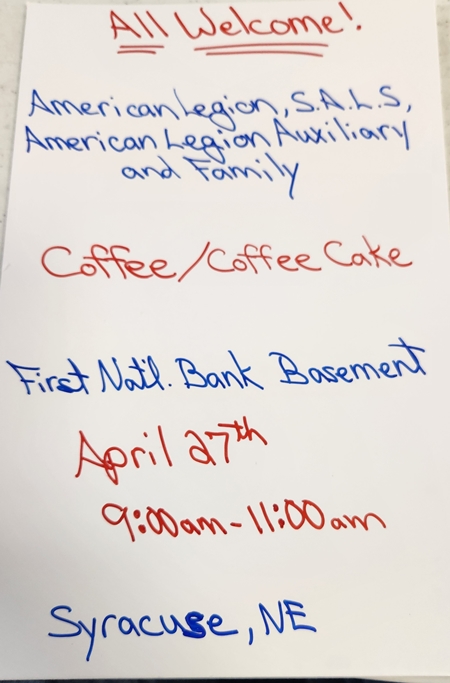 All Welcome!
American Legion, S.A.L.S,
American Legion Auxiliary
and Family
Coffee/Coffee Cake
First Nat'l. Bank Basement
April 27th
9:00am-11:00am
Syracuse, NE